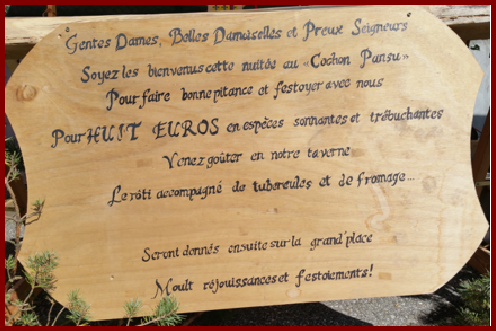 "Gentes Dames, Belles Damoiselles et Preux Seigneurs"
Soyez les bienvenus cette nuitée au «Cochon Pansu»
Pour faire bonne pitance et festoyer avec nous
Pour HUIT EUROS en espèces sonnantes et trébuchantes
Venez goûter en notre taverne
Le rôti accompagné de tubercules et de fromage...
Seront donnés ensuite sur la grand'place
Moult réjouissances et festoiements!